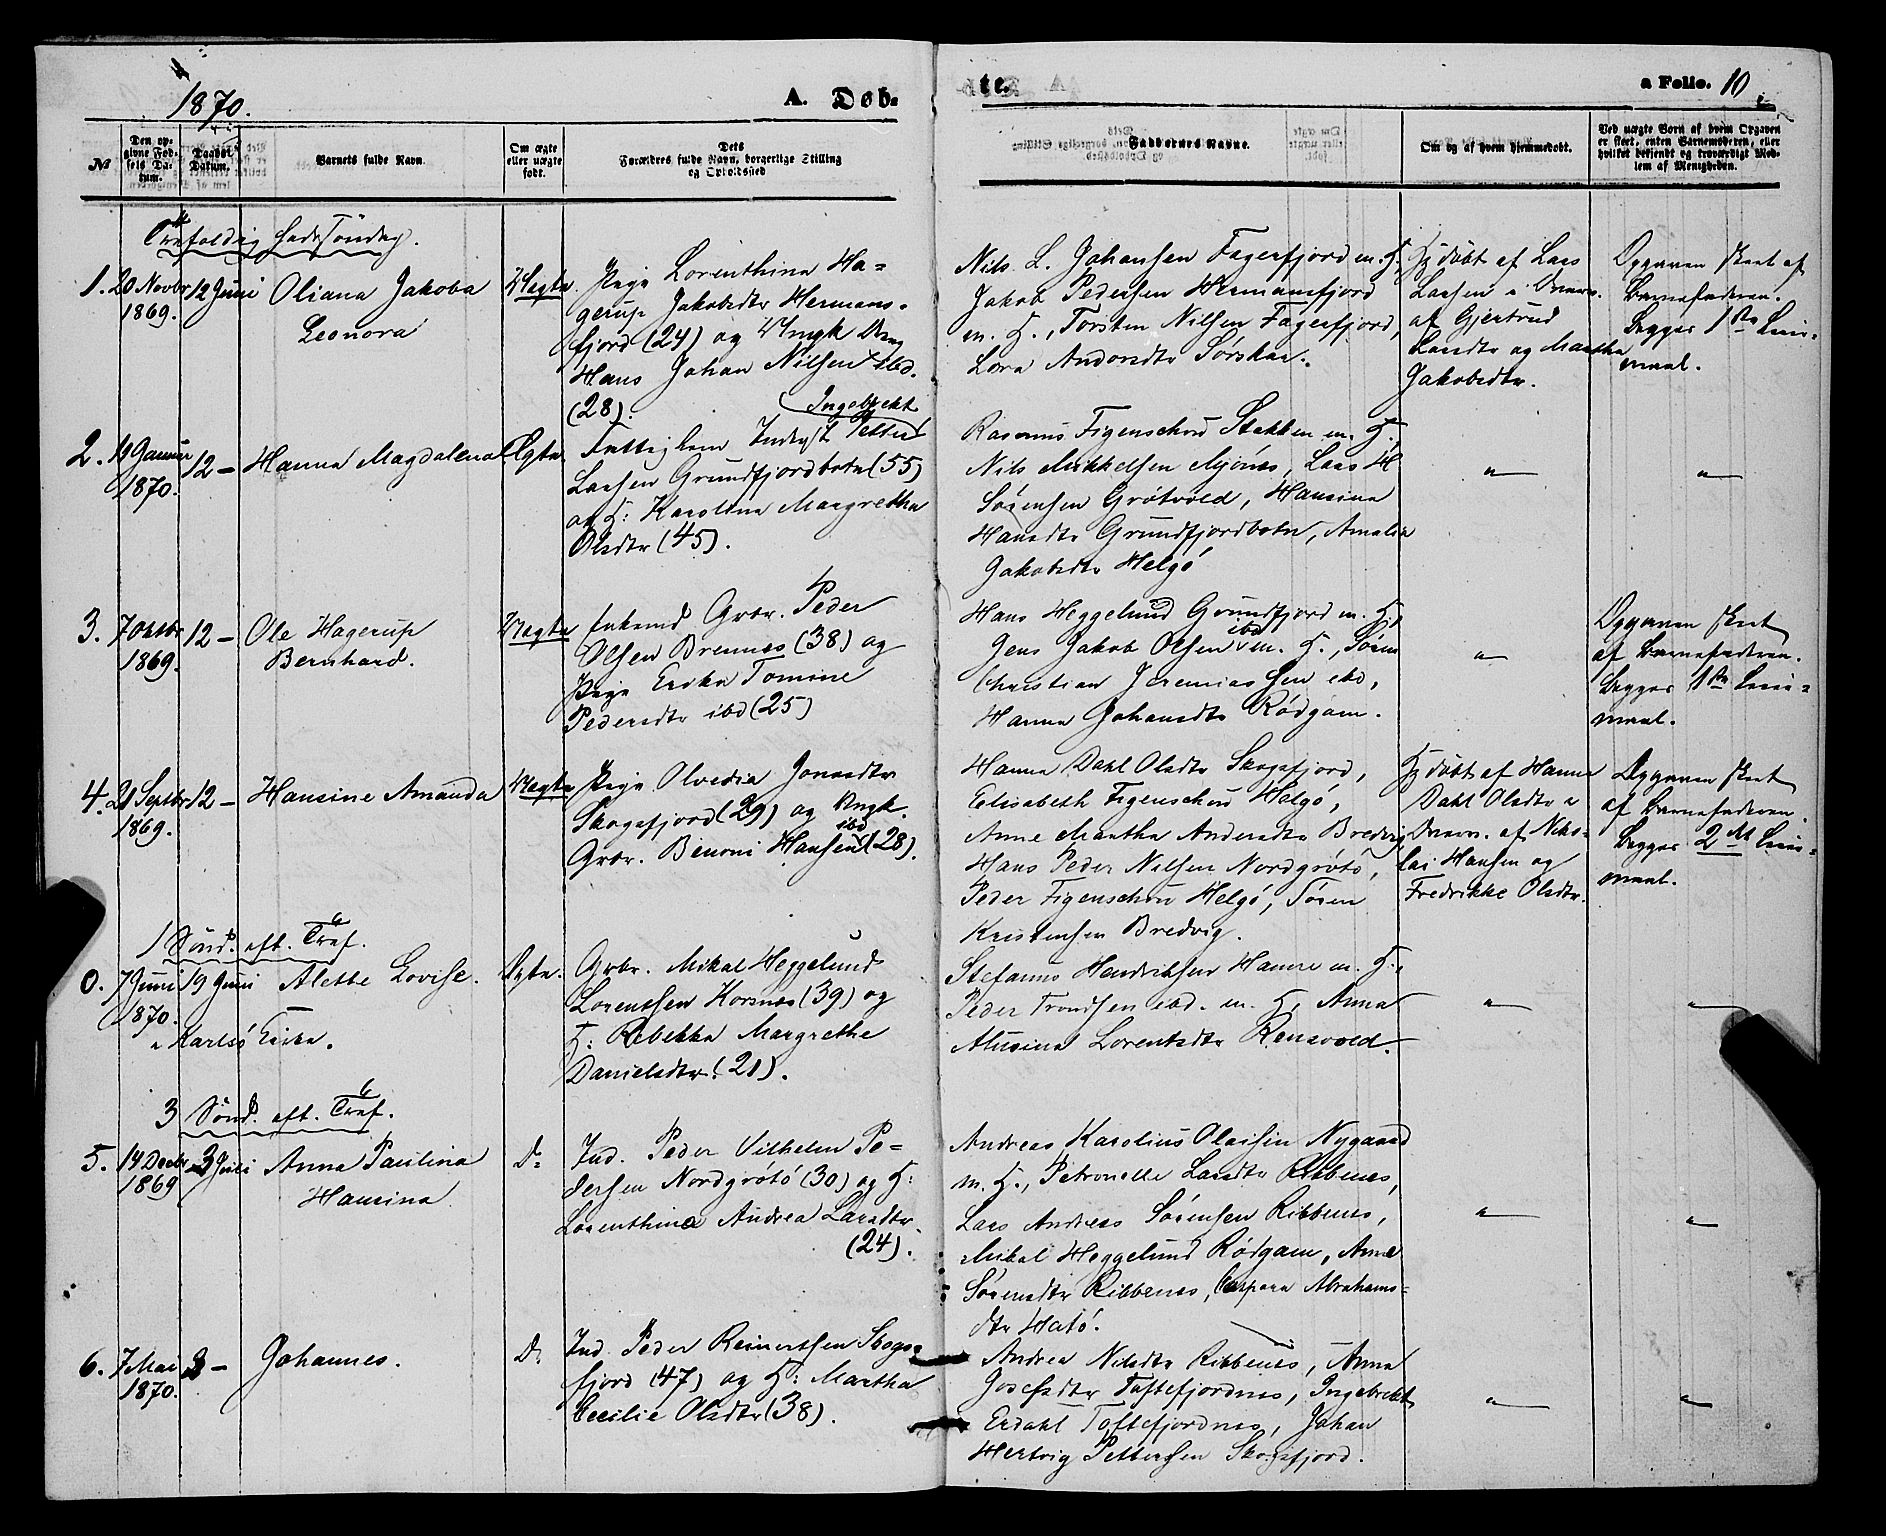 1870.
A. Døb-
te.
a Folio. 10
№
Den op-
givne Fød-
sels Da-
tum.
Daabs-
Datum.
Barnets fulde Navn.
Om ægte
eller uægte
født.
Dets
Forældres fulde Navn, borgerlige Stilling
og Opholdssted
Faddernes Navne.
Om og af hvem hjemmedøbt.
Ved uægte Børn af hvem Opgaven
er skeet, enten Barnemoderen, eller
hvilket bekjendt og troværdigt Med-
lem af Menigheden.
Trefoldighedssøndag.
1. 20 Novbr
1869.
12 Juni
Oliana Jakoba
Leonora
Uægte.
Pige Lorenthina Ha-
gerup Jakobsdtr Hermans-
fjord (24) og Ungk Dreng
Hans Johan Nilsen ibd.
(28).
Nils L. Johansen Fagerfjord m. H.
Jakob Pedersen Hermansfjord
m. H., Torsten Nilsen Fagerfjord,
Lora Andorsdtr Sørskar.
Hjdøbt af Lars
Larsen i Overv.
af Gjertrud
Larsdtr og Martha
Jakobsdtr.
Opgaven skeet af
Barnefaderen.
Begges 1ste Leier-
maal.
2. 19 Januar
1870.
12 –
Hanna Magdalena
Ægte.
Ingebrekt
Fattiglem Inderst Petter
Larsen Grundfjordbotn (55)
og H: Karolina Margretha
Olsdtr (45).
Rasmus Figenschou Stakken m. H.,
Nils Mikkelsen Mjønes, Lars H
Sørensen Grøtvold, Hansina
Hansdtr Grundfjordbotn, Amalia
Jakobsdtr Helgø
"
"
3. 7 Oktbr
1869.
12 –
Ole Hagerup
Bernhard.
Uægte
Enkemd Grbr. Peder
Olsen Brennes (38) og
Pige Erika Tomine
Pedersdtr ibd (25)
Hans Heggelund Grundfjord m. H.,
Jens Jakob Olsen ibd m. H., Søren
Christian Jeremiassen ibd,
Hanna Johansdtr Rødgam.
"
Opgaven skeet
af Barnefaderen.
Begges 1ste Leier-
maal.
4. 21 Septbr
1869.
12 –
Hansine Amanda
Uægte
Pige Olvedia Jonsdtr
Skogsfjord (29) og Ungk.
Grbr. Benoni Hansen ibd (28).
Hanna Dahl Olsdtr Skogsfjord,
Elisabeth Figenschou Helgø,
Anne Martha Andersdtr Bredvig,
Hans Peder Nilsen Nordgrøtø,
Peder Figenschou Helgø, Søren
Kristensen Bredvig.
Hjdøbt af Hanna
Dahl Olsdtr i
Overv. af Niko-
lai Hansen og
Fredrikke Olsdtr.
Opgaven skeet
af Barnefaderen.
Begges 2det Leier-
maal.
1 Sønd. eft. Tref.
0. 7 Juni
1870.
19 Juni
i Karlsø
Alette Lovise
Erika.
Ægte.
Grbr. Mikal Heggelund
Lorentsen Korsnes (39) og
H: Rebekka Margrethe
Danielsdtr. (21).
Stefanus Hendriksen Hamre m. H.,
Peder Trondsen ibd. m. H, Anna
Alusina Lorentsdtr Rensvold.
"
"
3 Sønd. eft. Tref.
5. 14 Decbr
1869
3 Juli
Anna Paulina
Hansina
Do
Ind. Peder Vilhelm Pe-
dersen Nordgrøtø (30) og H:
Lorenthina Andrea Larsdtr
(24).
Andreas Karolius Olaisen Nygaard
m. H., Petronelle Larsdtr Ribbenes,
Lars Andreas Sørensen Ribbenes,
Mikal Heggelund Rødgam, Anne
Sørensdtr Ribbenes, Caspara Abrahams-
dtr Hatø.
"
"
6. 7 Mai
1870.
3 –
Johannes.
Do
Ind. Peder Reinertsen Skogs-
fjord (47) og H: Martha
Cecilie Olsdtr (38).
Andrea Nilsdtr Ribbenes, Anna
Josefsdtr Toftefjordnes, Ingebrekt
Erdahl Toftefjordnes, Johan
Hertvig Pettersen Skogsfjord.
"
"